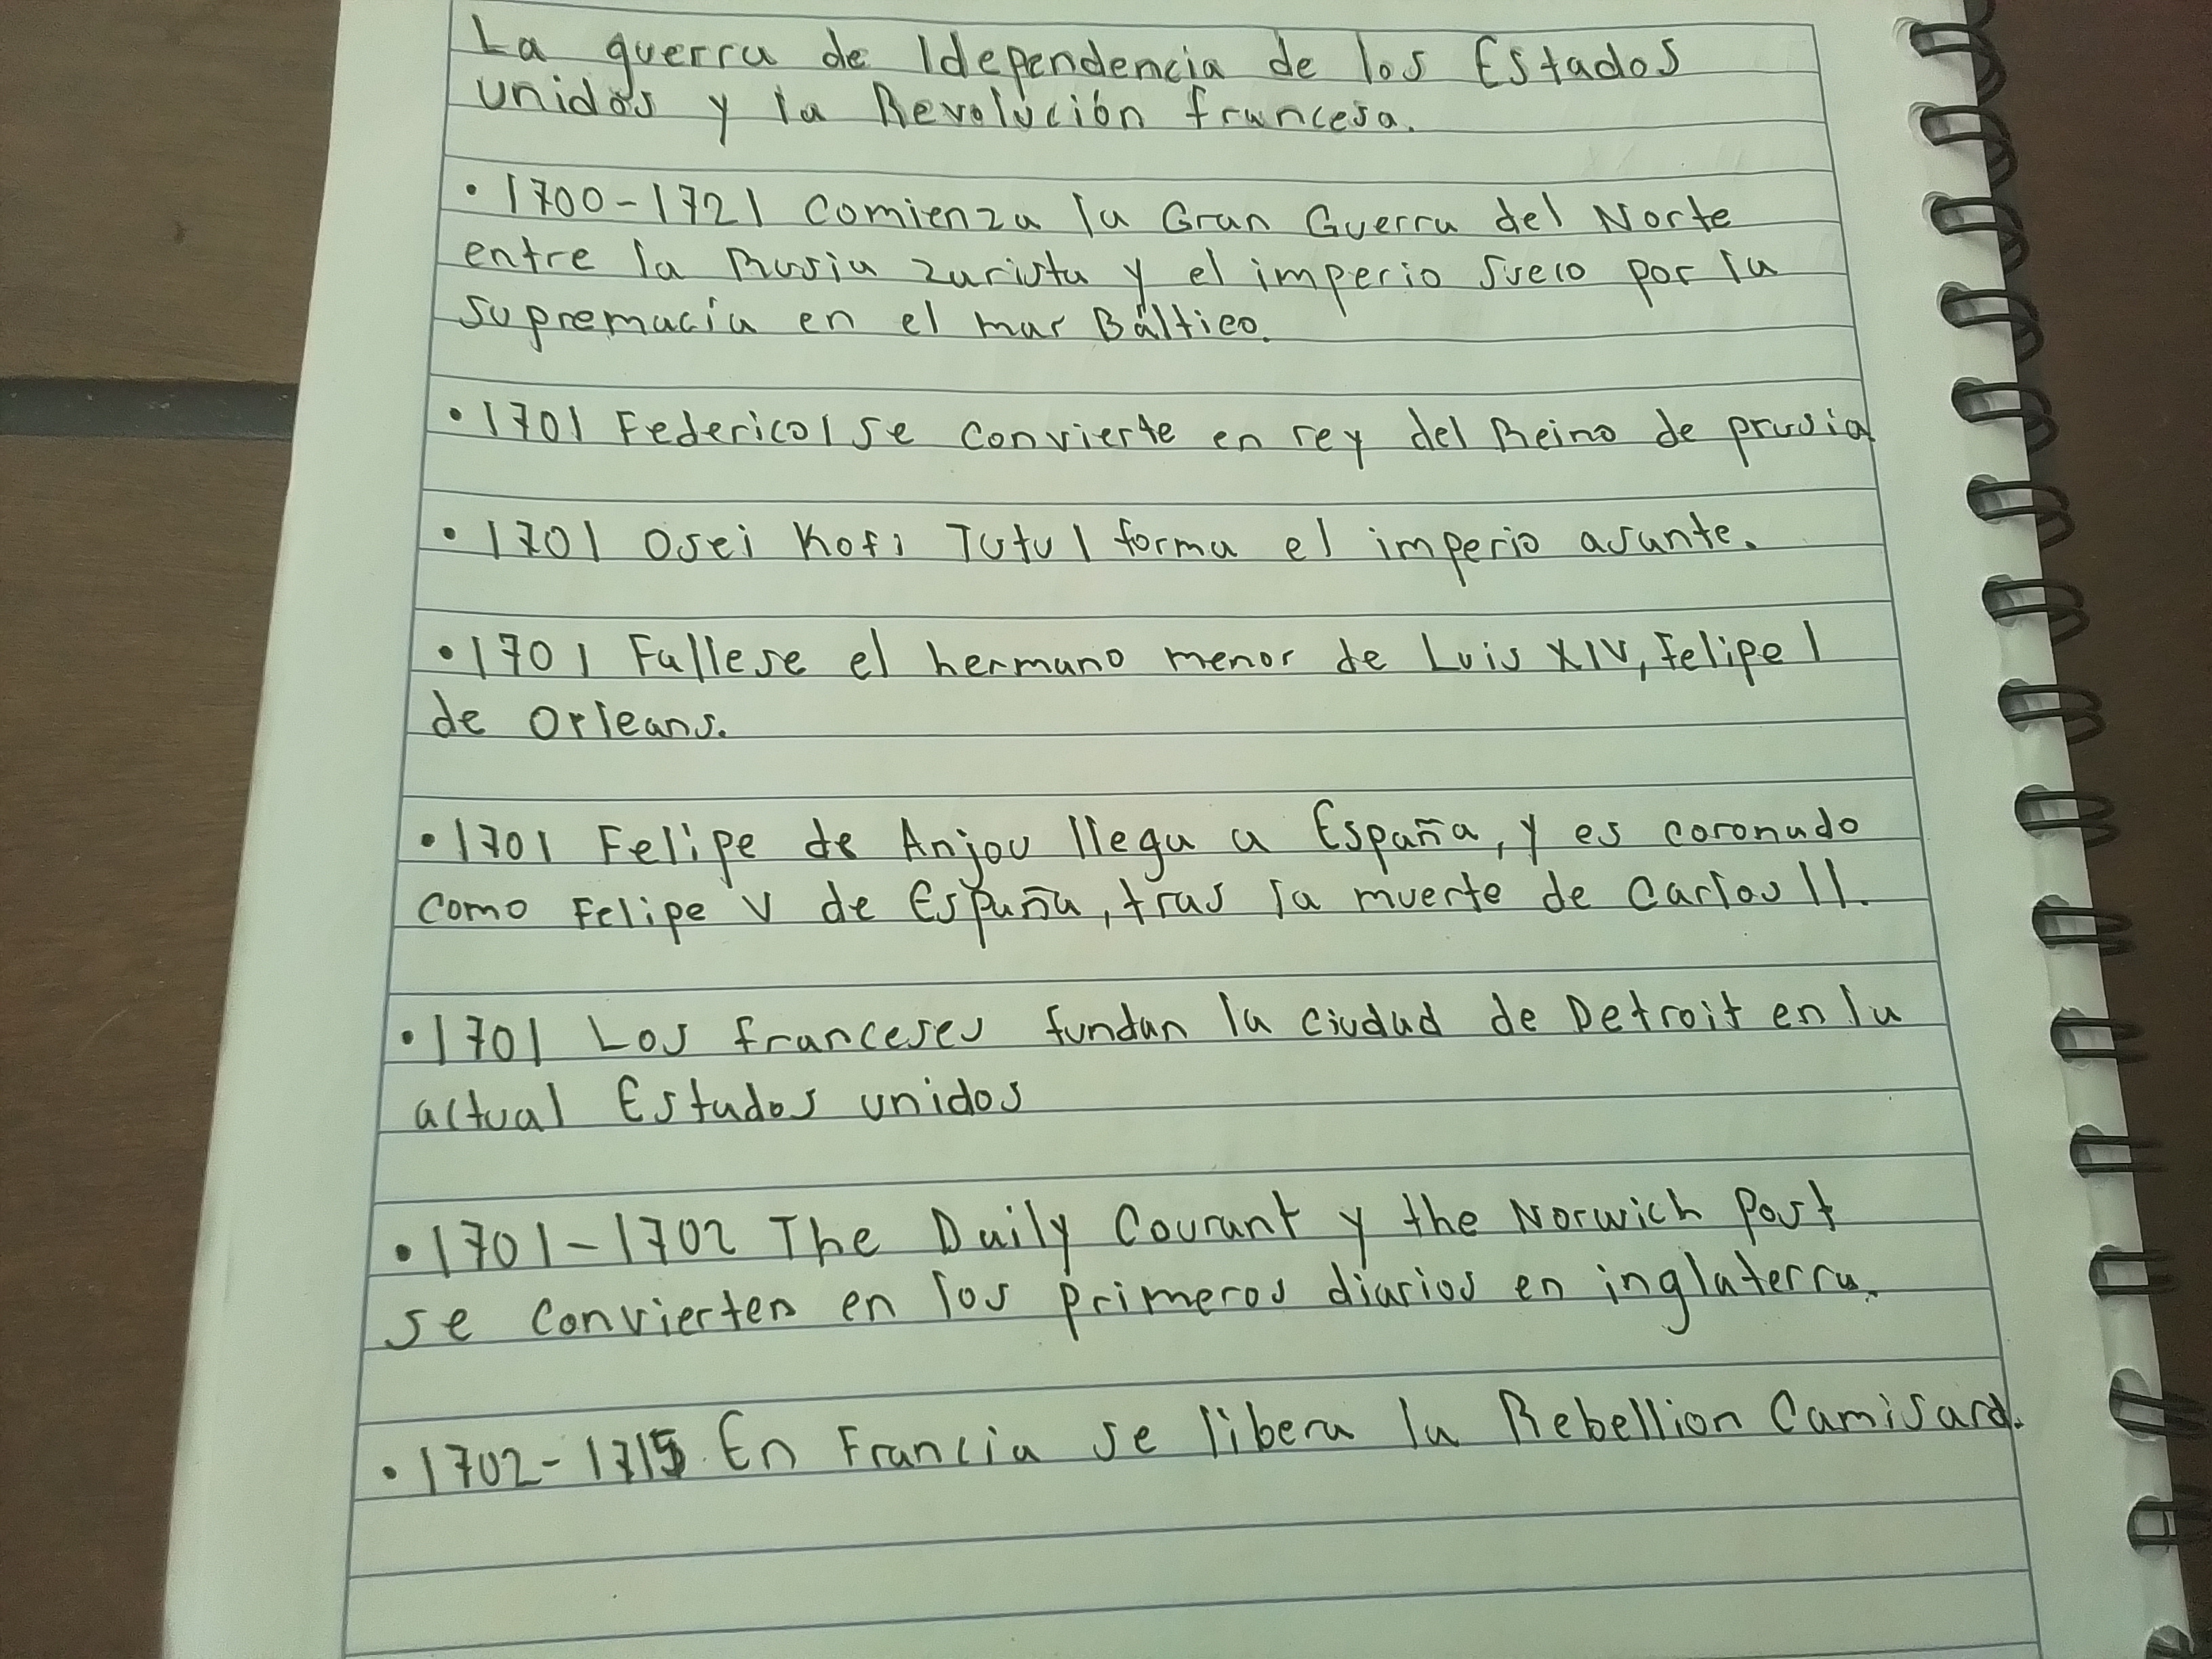 La guerra de Idependencia de los Estados
unidos y la Revolución francesa.
• 1700-1721 Comienza la Gran Guerra del Norte
entre la Rusia zarista y el imperio sueco por la
supremacía en el mar Báltico.
• 1701 Federico I se convierte en rey del Reino de prusia
• 1701 Osei Kofi Tutu I forma el imperio asante.
• 1701 Fallese el hermano menor de Luis XIV, Felipe I
de Orleans.
• 1701 Felipe de Anjou llega a España, y es coronado
como Felipe V de España, tras la muerte de Carlos II.
• 1701 Los franceses fundan la ciudad de Detroit en la
actual Estados unidos
• 1701-1702 The Daily Courant y the Norwich Post
se convierten en los primeros diarios en inglaterra.
• 1702-1715 En Francia se libera la Rebellion Camisard.